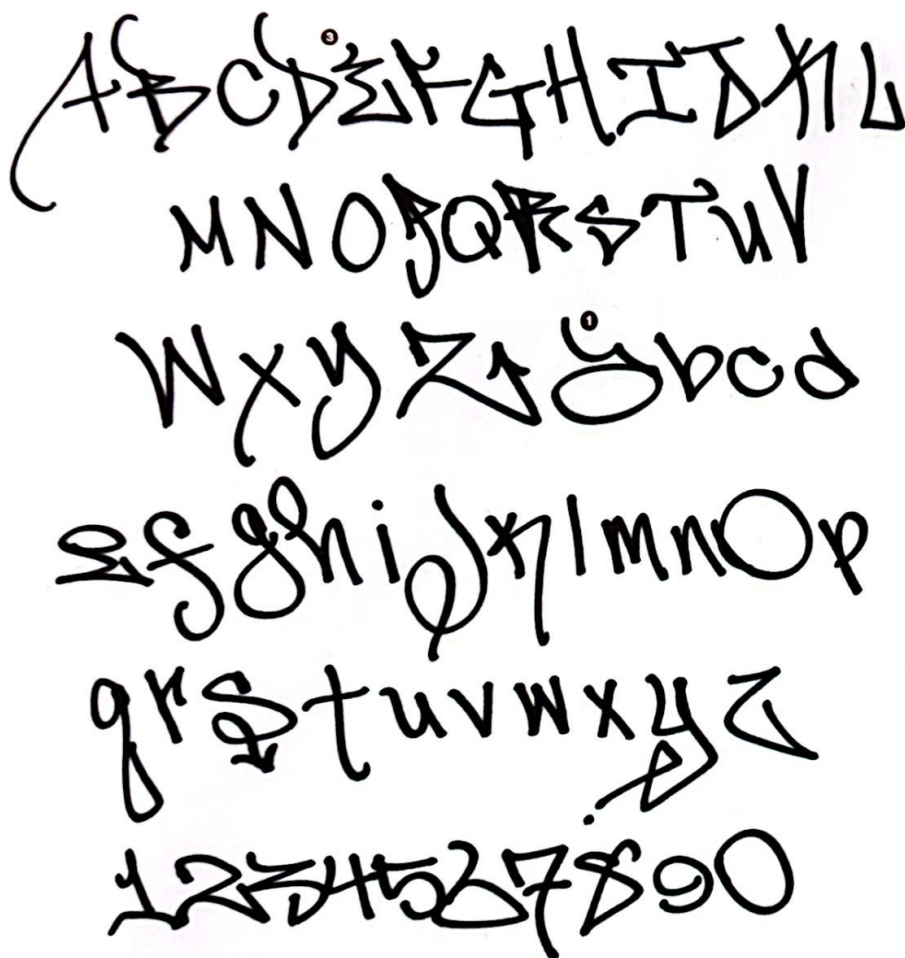 ABCD③EFGHIJKL
MNOPQRSTUV
WXYZ①abcd
efghijklmnop
qrstuvwxyz
1234567890